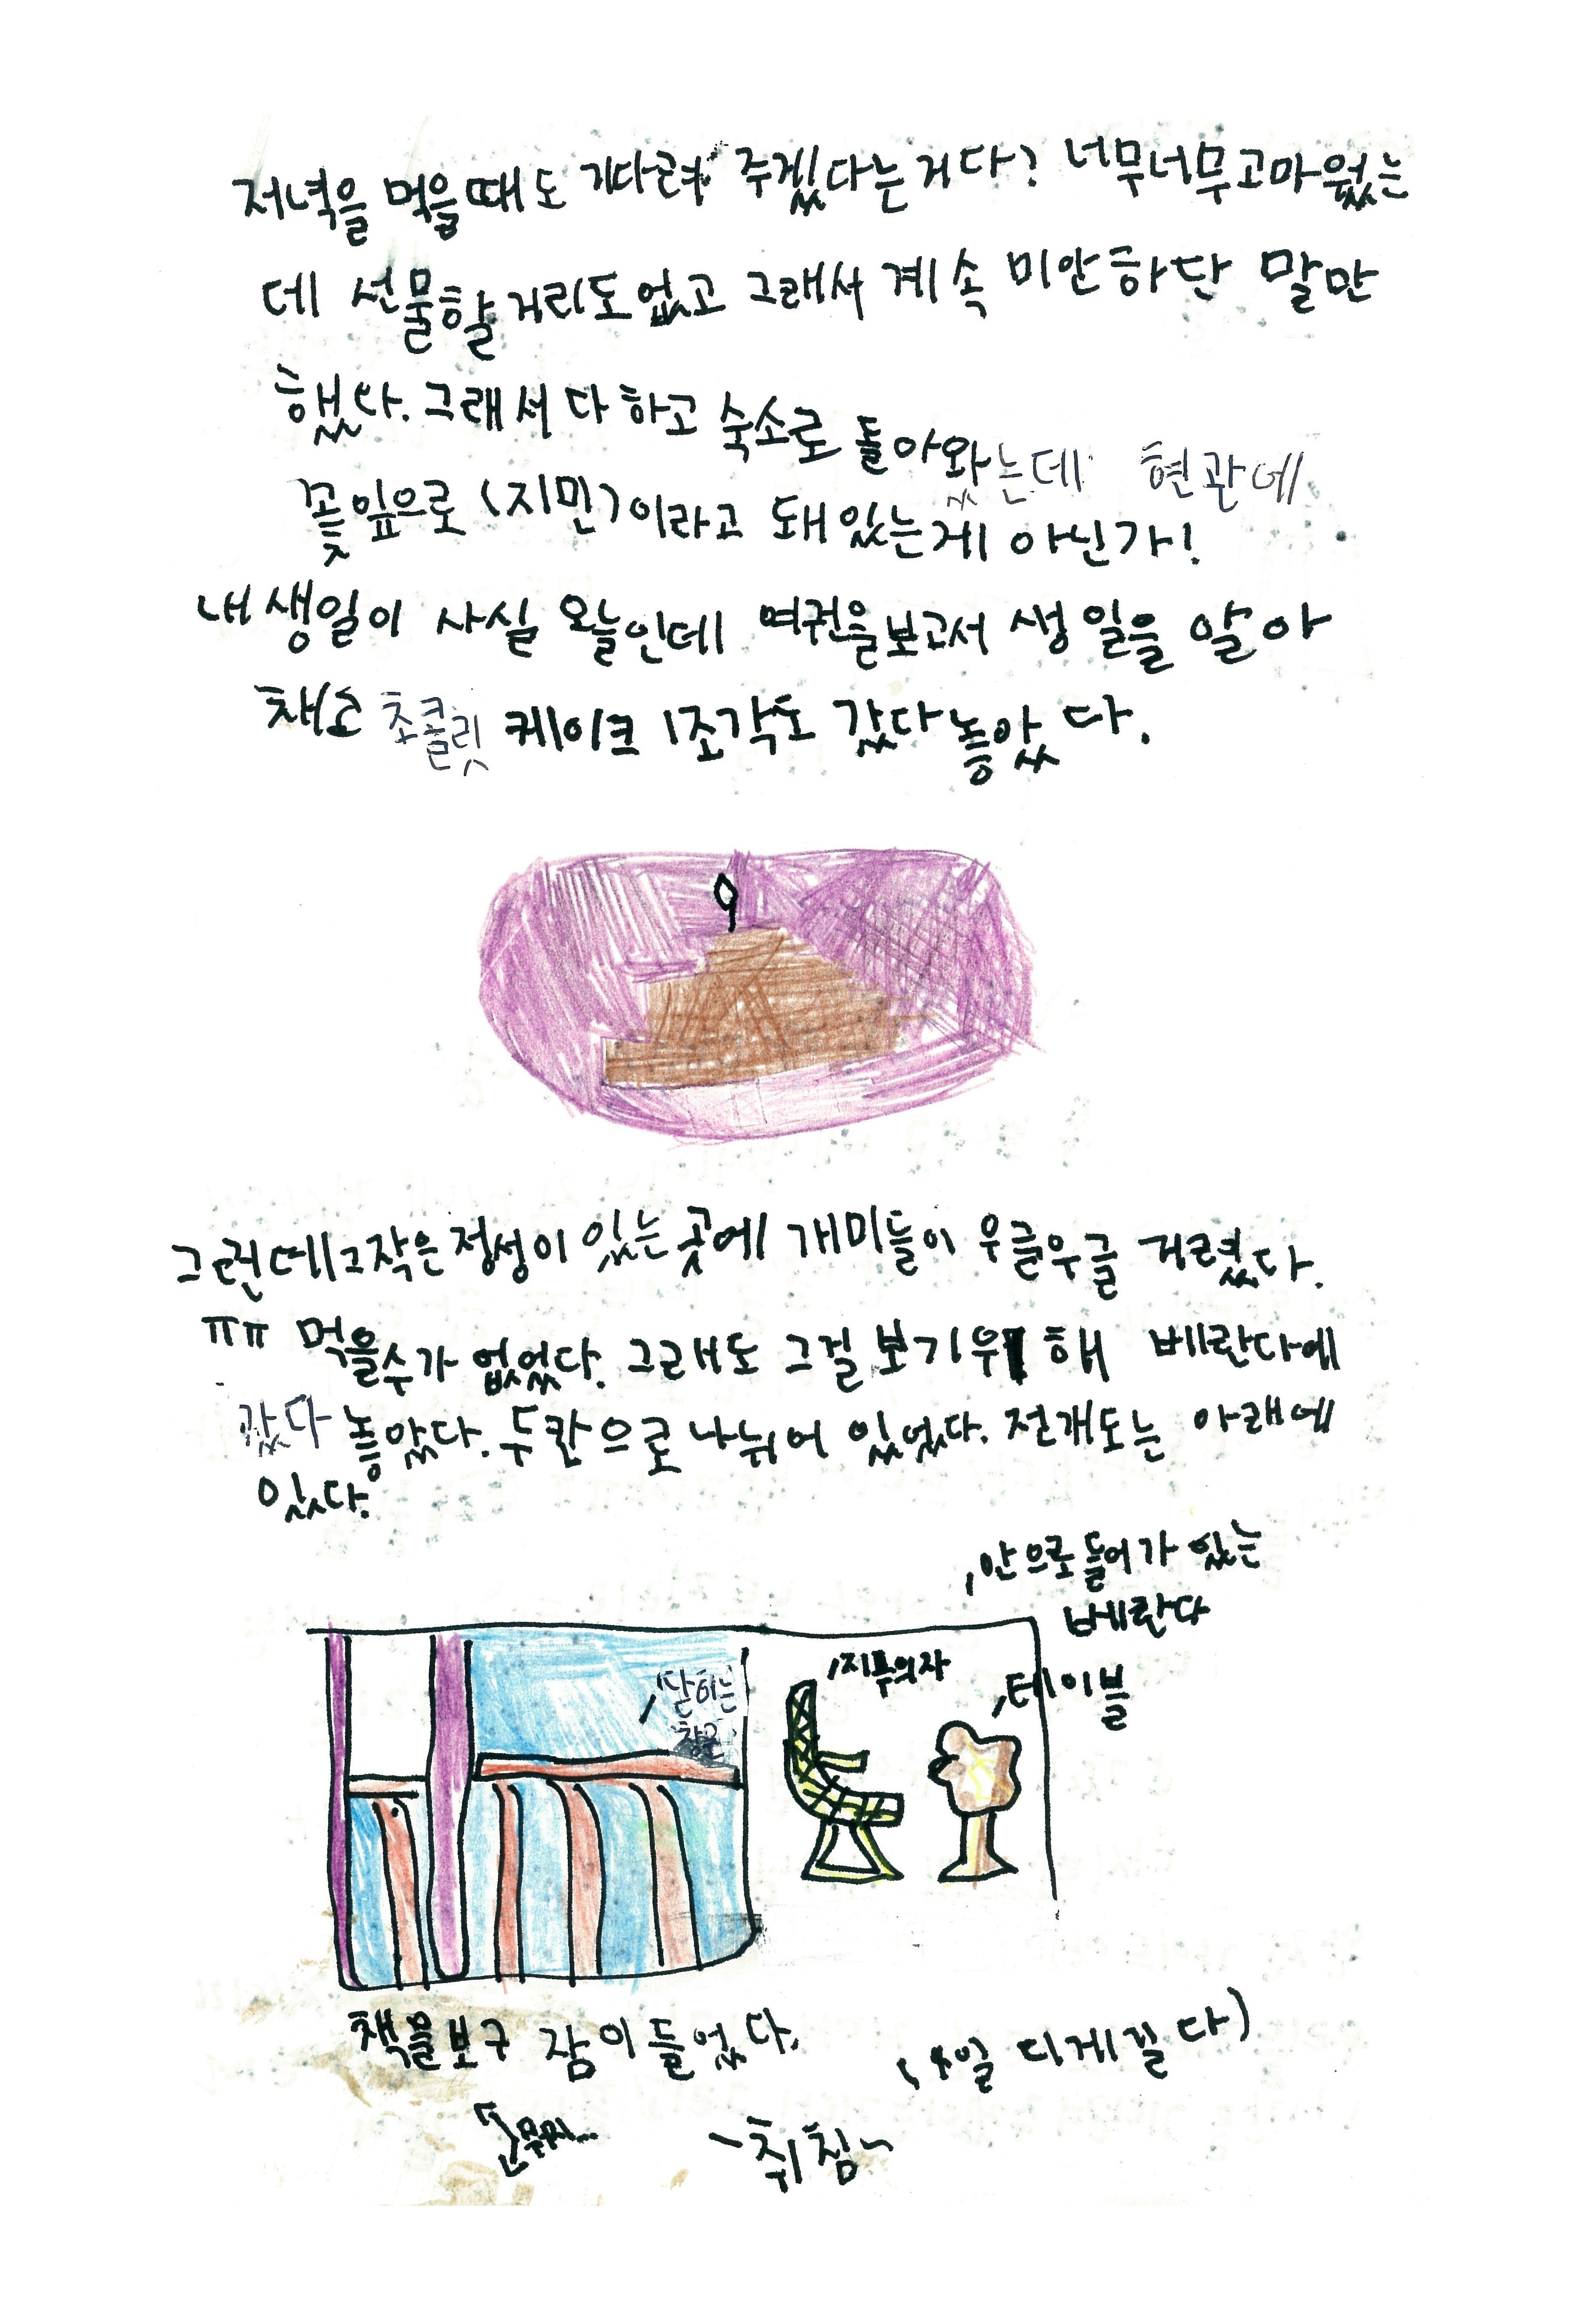 저녁을 먹을때도 기다려 주겠다는거다? 너무너무고마웠는
데 선물할거리도없고 그래서 계속 미안하단 말만
했다. 그래서 다 하고 숙소로 돌아왔는데 현관에
꽃잎으로 (지민)이라고 돼있는게 아닌가!
내 생일이 사실 오늘인데 여권을보고서 생일을 알아
채소 초콜릿 케이크 1조각도 갔다놓았다.
그런데 그작은정성이 있는 곳에 개미들이 우글우글 거렸다.
ㅠㅠ 먹을수가 없었다. 그래도 그걸 보기위해 베란다에
갔다 놓았다. 두칸으로 나뉘어 있었다. 전개도는 아래에
있다.
안으로들어가 있는
베란다
지푸의자
테이블
닫히는
창문
책을보구 잠이들었다.
~취침~